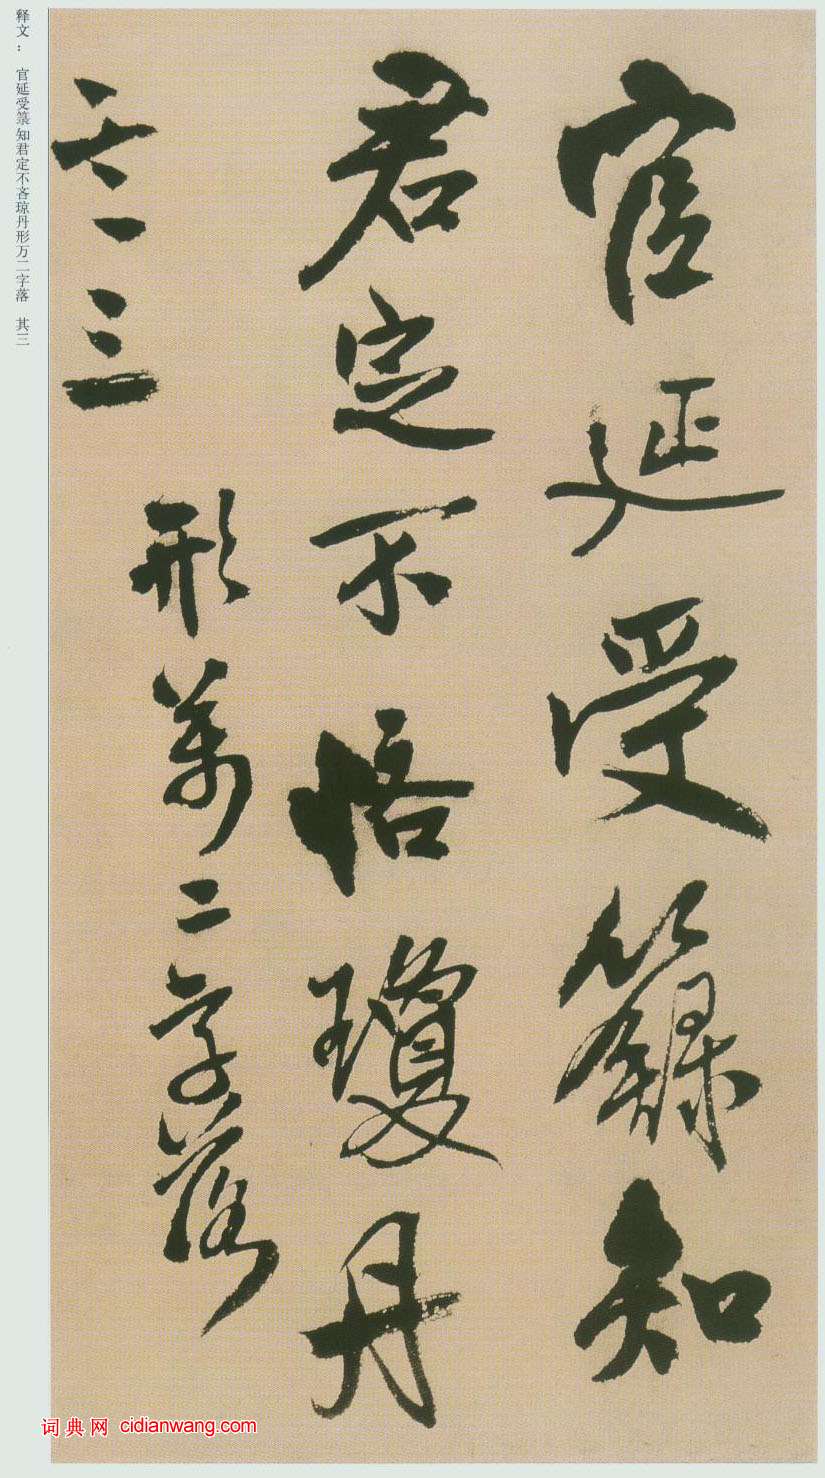 官延受籙知
君定不悋瓊丹
形萬二字落
其三
释文： 官延受箓知君定不吝琼丹形万二字落 其三
词典网 cidianwang.com